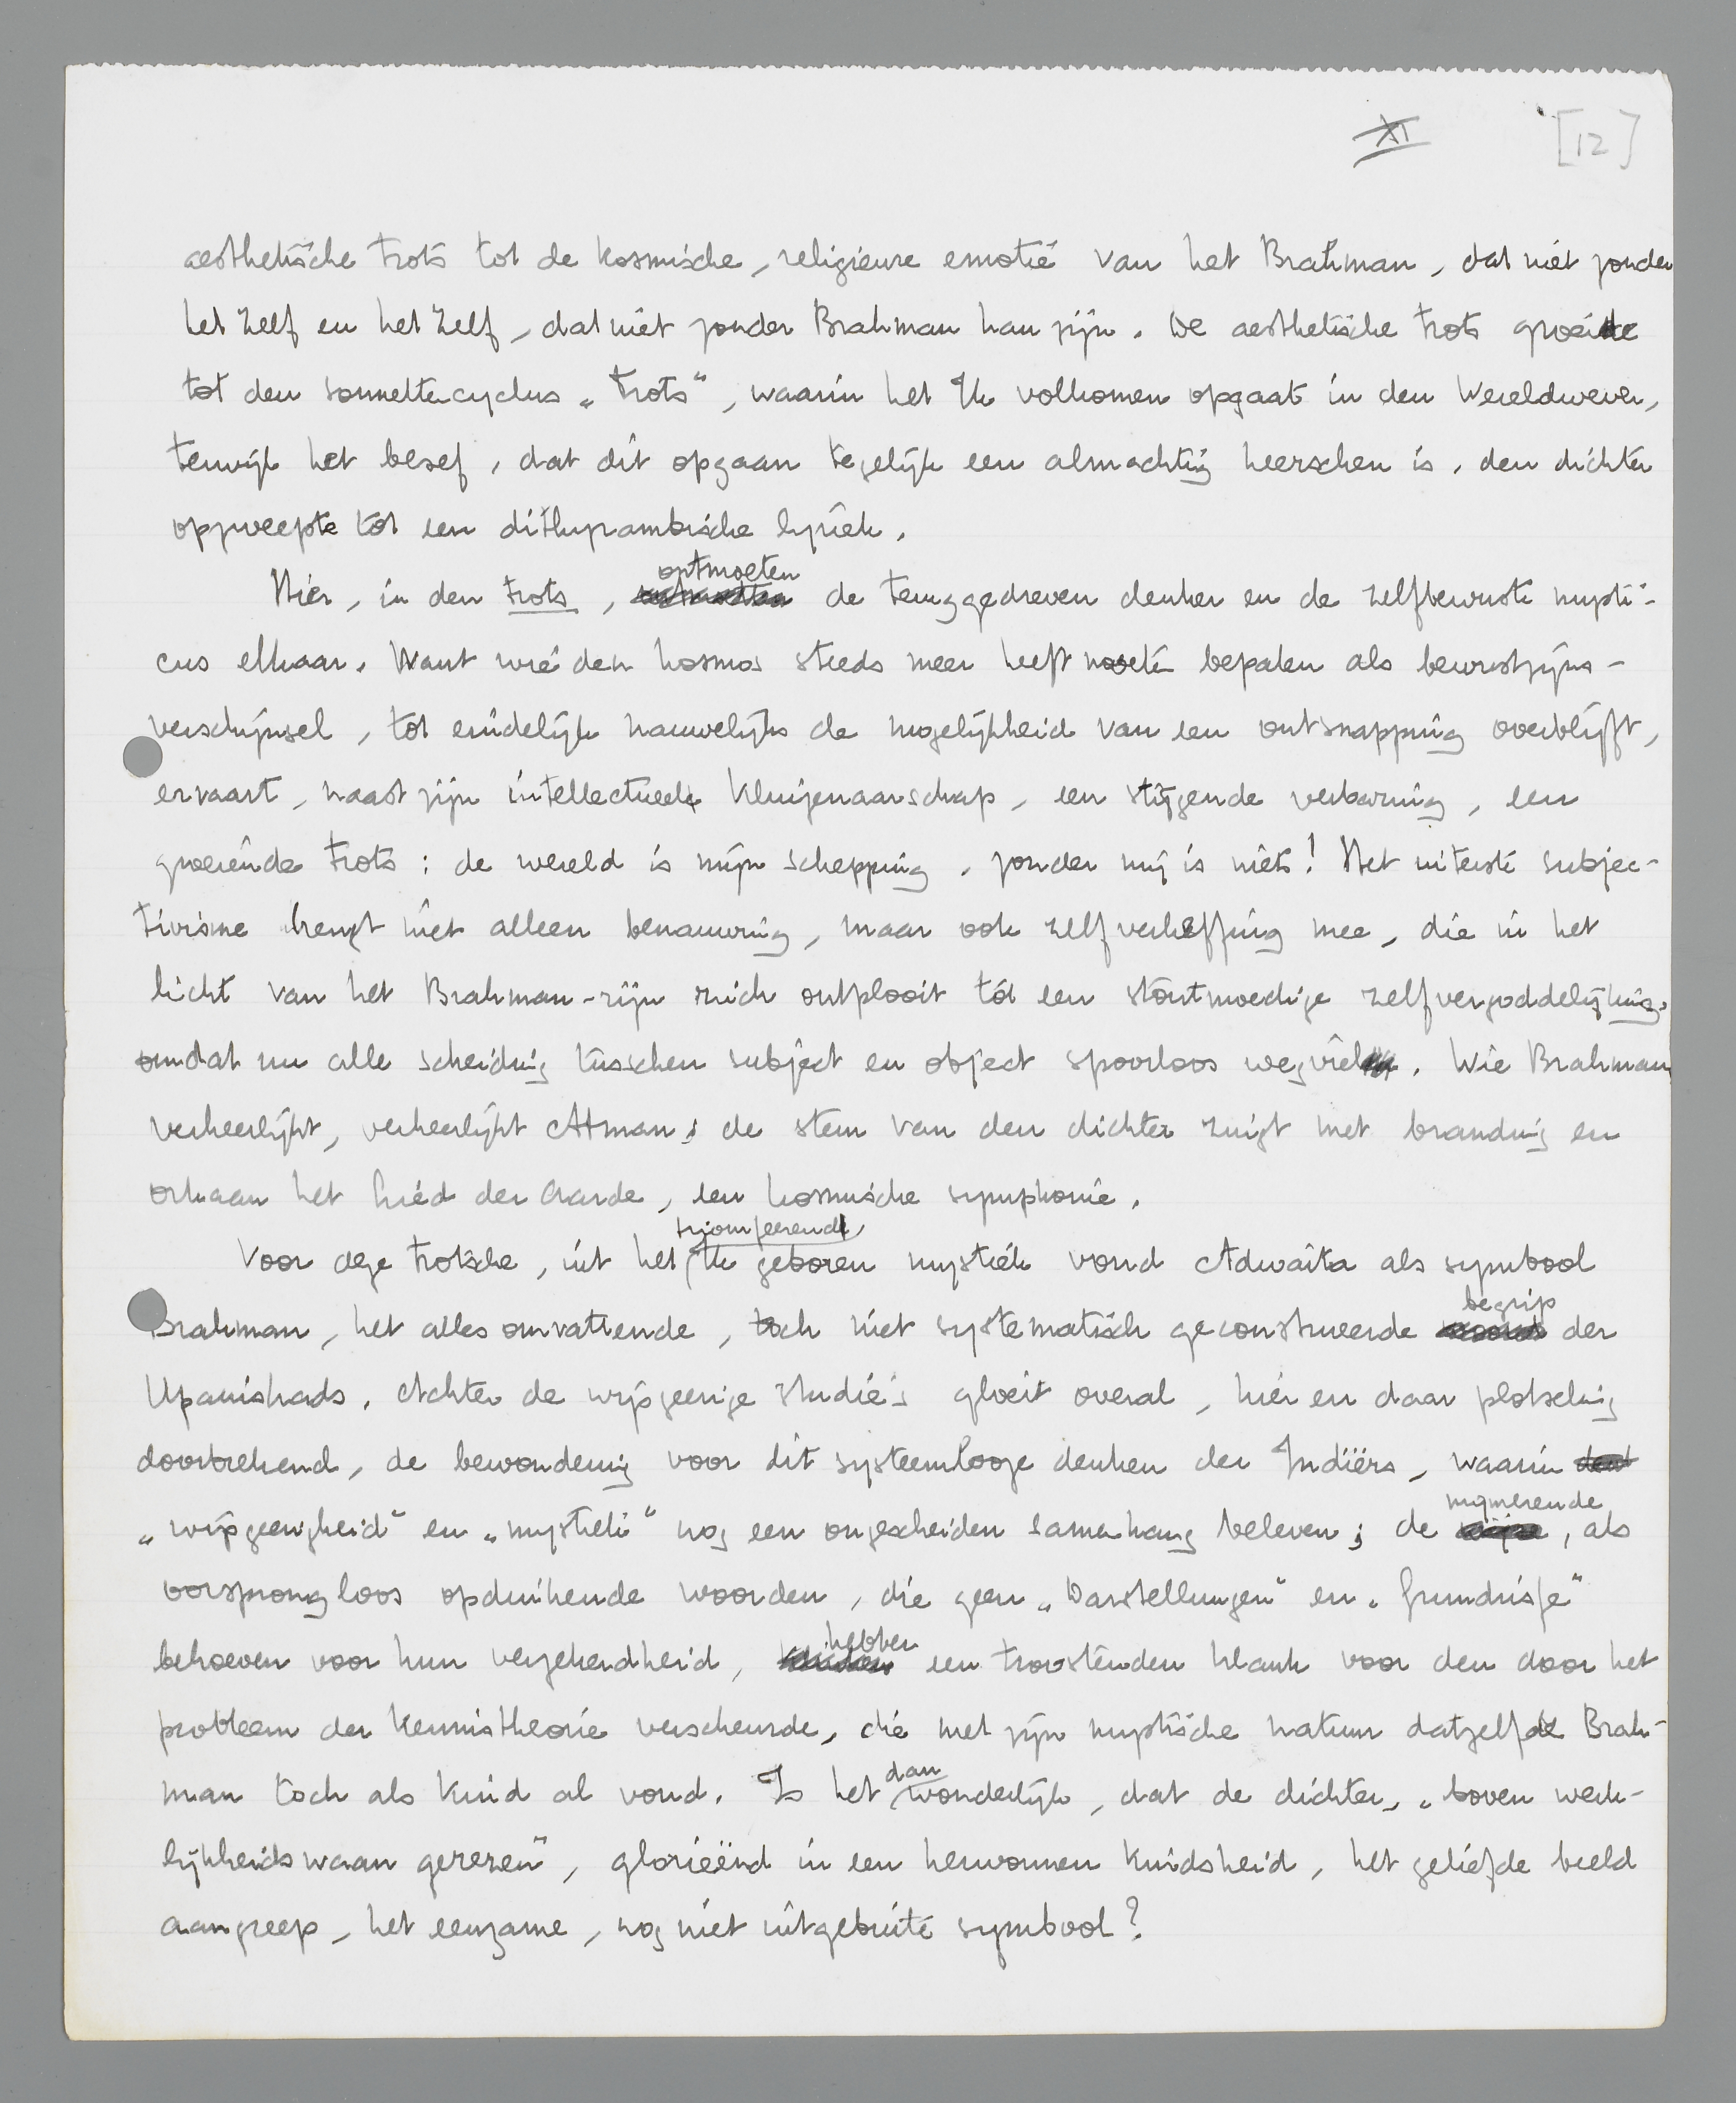 XI [12]
aesthetische trots tot de kosmische, religieuze emotie van het Brahman, dat niet zonder
het Zelf en het Zelf, dat niet zonder Brahman kan zijn. De aesthetische trots groeide
tot den sonnettencyclus „Trots“, waarin het Ik volkomen opgaat in den Wereldwever,
terwijl het besef, dat dit opgaan tegelijk een almachtig heerschen is, den dichter
opzweepte tot een dithyrambische lyriek.
Hier, in den trots, ontmoeten de teruggedreven denker en de zelfbewuste mysti-
cus elkaar. Want wie den kosmos steeds meer heeft moeten bepalen als bewustzijns-
verschijnsel, tot eindelijk nauwelijks de mogelijkheid van een ontsnapping overblijft,
ervaart, naast zijn intellectueele kluizenaarschap, een stijgende verbazing, een
groeiende trots: de wereld is mijn schepping, zonder mij is niets! Het uiterste subjec-
tivisme brengt niet alleen benauwing, maar ook zelfverheffing mee, die in het
licht van het Brahman-zijn zich ontplooit tot een stoutmoedige zelfvergoddelijking,
omdat nu alle scheiding tusschen subject en object spoorloos wegviel. Wie Brahman
verheerlijkt, verheerlijkt Atman; de stem van den dichter zingt met branding en
orkaan het Lied der Aarde, een kosmische symphonie.
Voor deze trotsche, uit het triomfeerende Ik geboren mystiek vond Adwaita als symbool
Brahman, het alles omvattende, toch niet systematisch geconstrueerde begrip der
Upanishads. Achter de wijsgeerige studie's gloeit overal, hier en daar plotseling
doorbrekend, de bewondering voor dit systeemlooze denken der Indiërs, waarin
„wijsgeerigheid“ en „mystiek“ nog een ongescheiden samenhang beleven; de mijmerende, als
oorsprongloos opduikende woorden, die geen „Darstellungen“ en „Grundrisse“
behoeven voor hun verzekerdheid, hebben een troostenden klank voor den door het
probleem der kennistheorie verscheurde, die met zijn mystische natuur datzelfde Brah-
man toch als kind al vond. Is het dan wonderlijk, dat de dichter, „boven werk-
lijkheidswaan gerezen“, glorieënd in een herwonnen kindsheid, het geliefde beeld
aangreep, het eenzame, nog niet uitgebuite symbool?